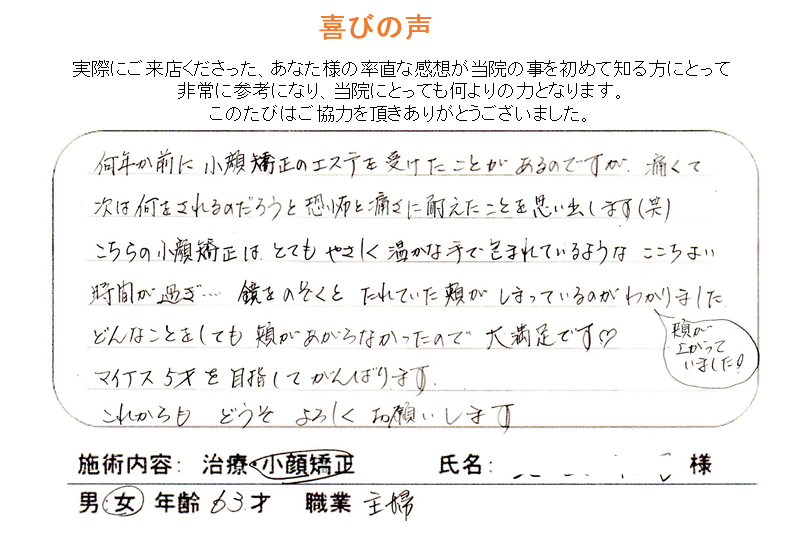 喜びの声
実際にご来店くださった、あなた様の率直な感想が当院の事を初めて知る方にとって
非常に参考になり、当院にとっても何よりの力となります。
このたびはご協力を頂きありがとうございました。
何年か前に 小顔矯正のエステを受けたことがあるのですが、痛くて
次は何をされるのだろうと恐怖と痛さに耐えたことを思い出します(笑)
こちらの小顔矯正は、とても やさしく 温かな手で包まれているような ここちよい
時間が過ぎ… 鏡をのぞくと たれていた頬が しまっているのが わかりました
どんなことをしても 頬があがらなかったので 大満足です♡
頬が
上がって
いました!
マイナス5才を目指して がんばります。
これからも どうぞ よろしく お願いします
施術内容: 治療・小顔矯正 氏名: 様
男・女 年齢 63才 職業 主婦